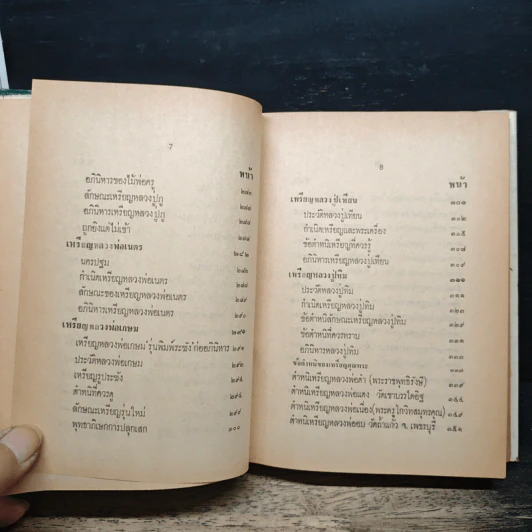 7
หน้า
อภินิหารของไม้พ่อครู
ลักษณะเหรียญหลวงปู่ภู
อภินิหารเหรียญหลวงปู่ภู
ถูกยิงแต่ไม่เข้า
เหรียญหลวงพ่อเนตร
นครปฐม
กำเนิดเหรียญหลวงพ่อเนตร
ลักษณะของเหรียญหลวงพ่อเนตร
อภินิหารเหรียญหลวงพ่อเนตร
เหรียญหลวงพ่อเกษม
เหรียญหลวงพ่อเกษม รุ่นพิมพ์ระฆัง ก่ออภินิหาร
ประวัติหลวงพ่อเกษม
เหรียญรูประฆัง
ตำหนิที่ควรดู
ลักษณะเหรียญรุ่นใหม่
พุทธาภิเษกการปลุกเสก ๓๐๐
8
หน้า
เหรียญหลวงปู่เทียน ๓๐๑
ประวัติหลวงปู่เทียน ๓๐๒
กำเนิดเหรียญและพระเครื่อง ๓๐๕
ข้อตำหนิเหรียญที่ควรรู้ ๓๐๘
อภินิหารเหรียญหลวงปู่เทียน ๓๐๙
เหรียญหลวงปู่ทิม ๓๑๑
ประวัติหลวงปู่ทิม ๓๑๑
กำเนิดเหรียญหลวงปู่ทิม
ข้อตำหนิลักษณะเหรียญหลวงปู่ทิม
ข้อตำหนิที่ควรทราบ
อภินิหารหลวงปู่ทิม
ตำหนิเหรียญหลวงพ่อดำ (พระราชพุทธิรังษี) ๓๓๙
ตำหนิเหรียญหลวงพ่อแดง วัดเขาบรรไดอิฐ
ตำหนิเหรียญหลวงพ่อเนื่อง(พระครูโกวิทสมุทรคุณ) ๓๔๙
ตำหนิเหรียญหลวงพ่ออบ วัดถ้ำแก้ว จ. เพชรบุรี ๓๕๑